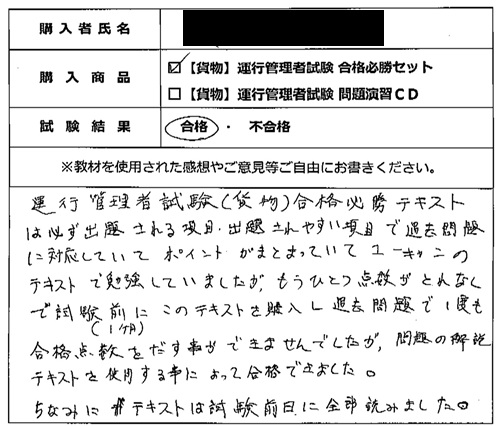 購入者氏名
購入商品
☑【貨物】運行管理者試験 合格必勝セット
□【貨物】運行管理者試験 問題演習CD
試験結果
合格 ・ 不合格
※教材を使用された感想やご意見等ご自由にお書きください。
運行管理者試験(貨物)合格必勝テキスト
は必ず出題される項目・出題されやすい項目で過去問題
に対応していて ポイントがまとまっていて ユーキャンの
テキストで勉強していましたが、もうひとつ点数がとれなく
で試験前にこのテキストを購入し過去問題で1度も
(1ヶ月)
合格点数をだす事ができませんでしたが、問題の解説
テキストを使用する事によって合格できました。
ちなみにテキストは試験前日に全部読みました。